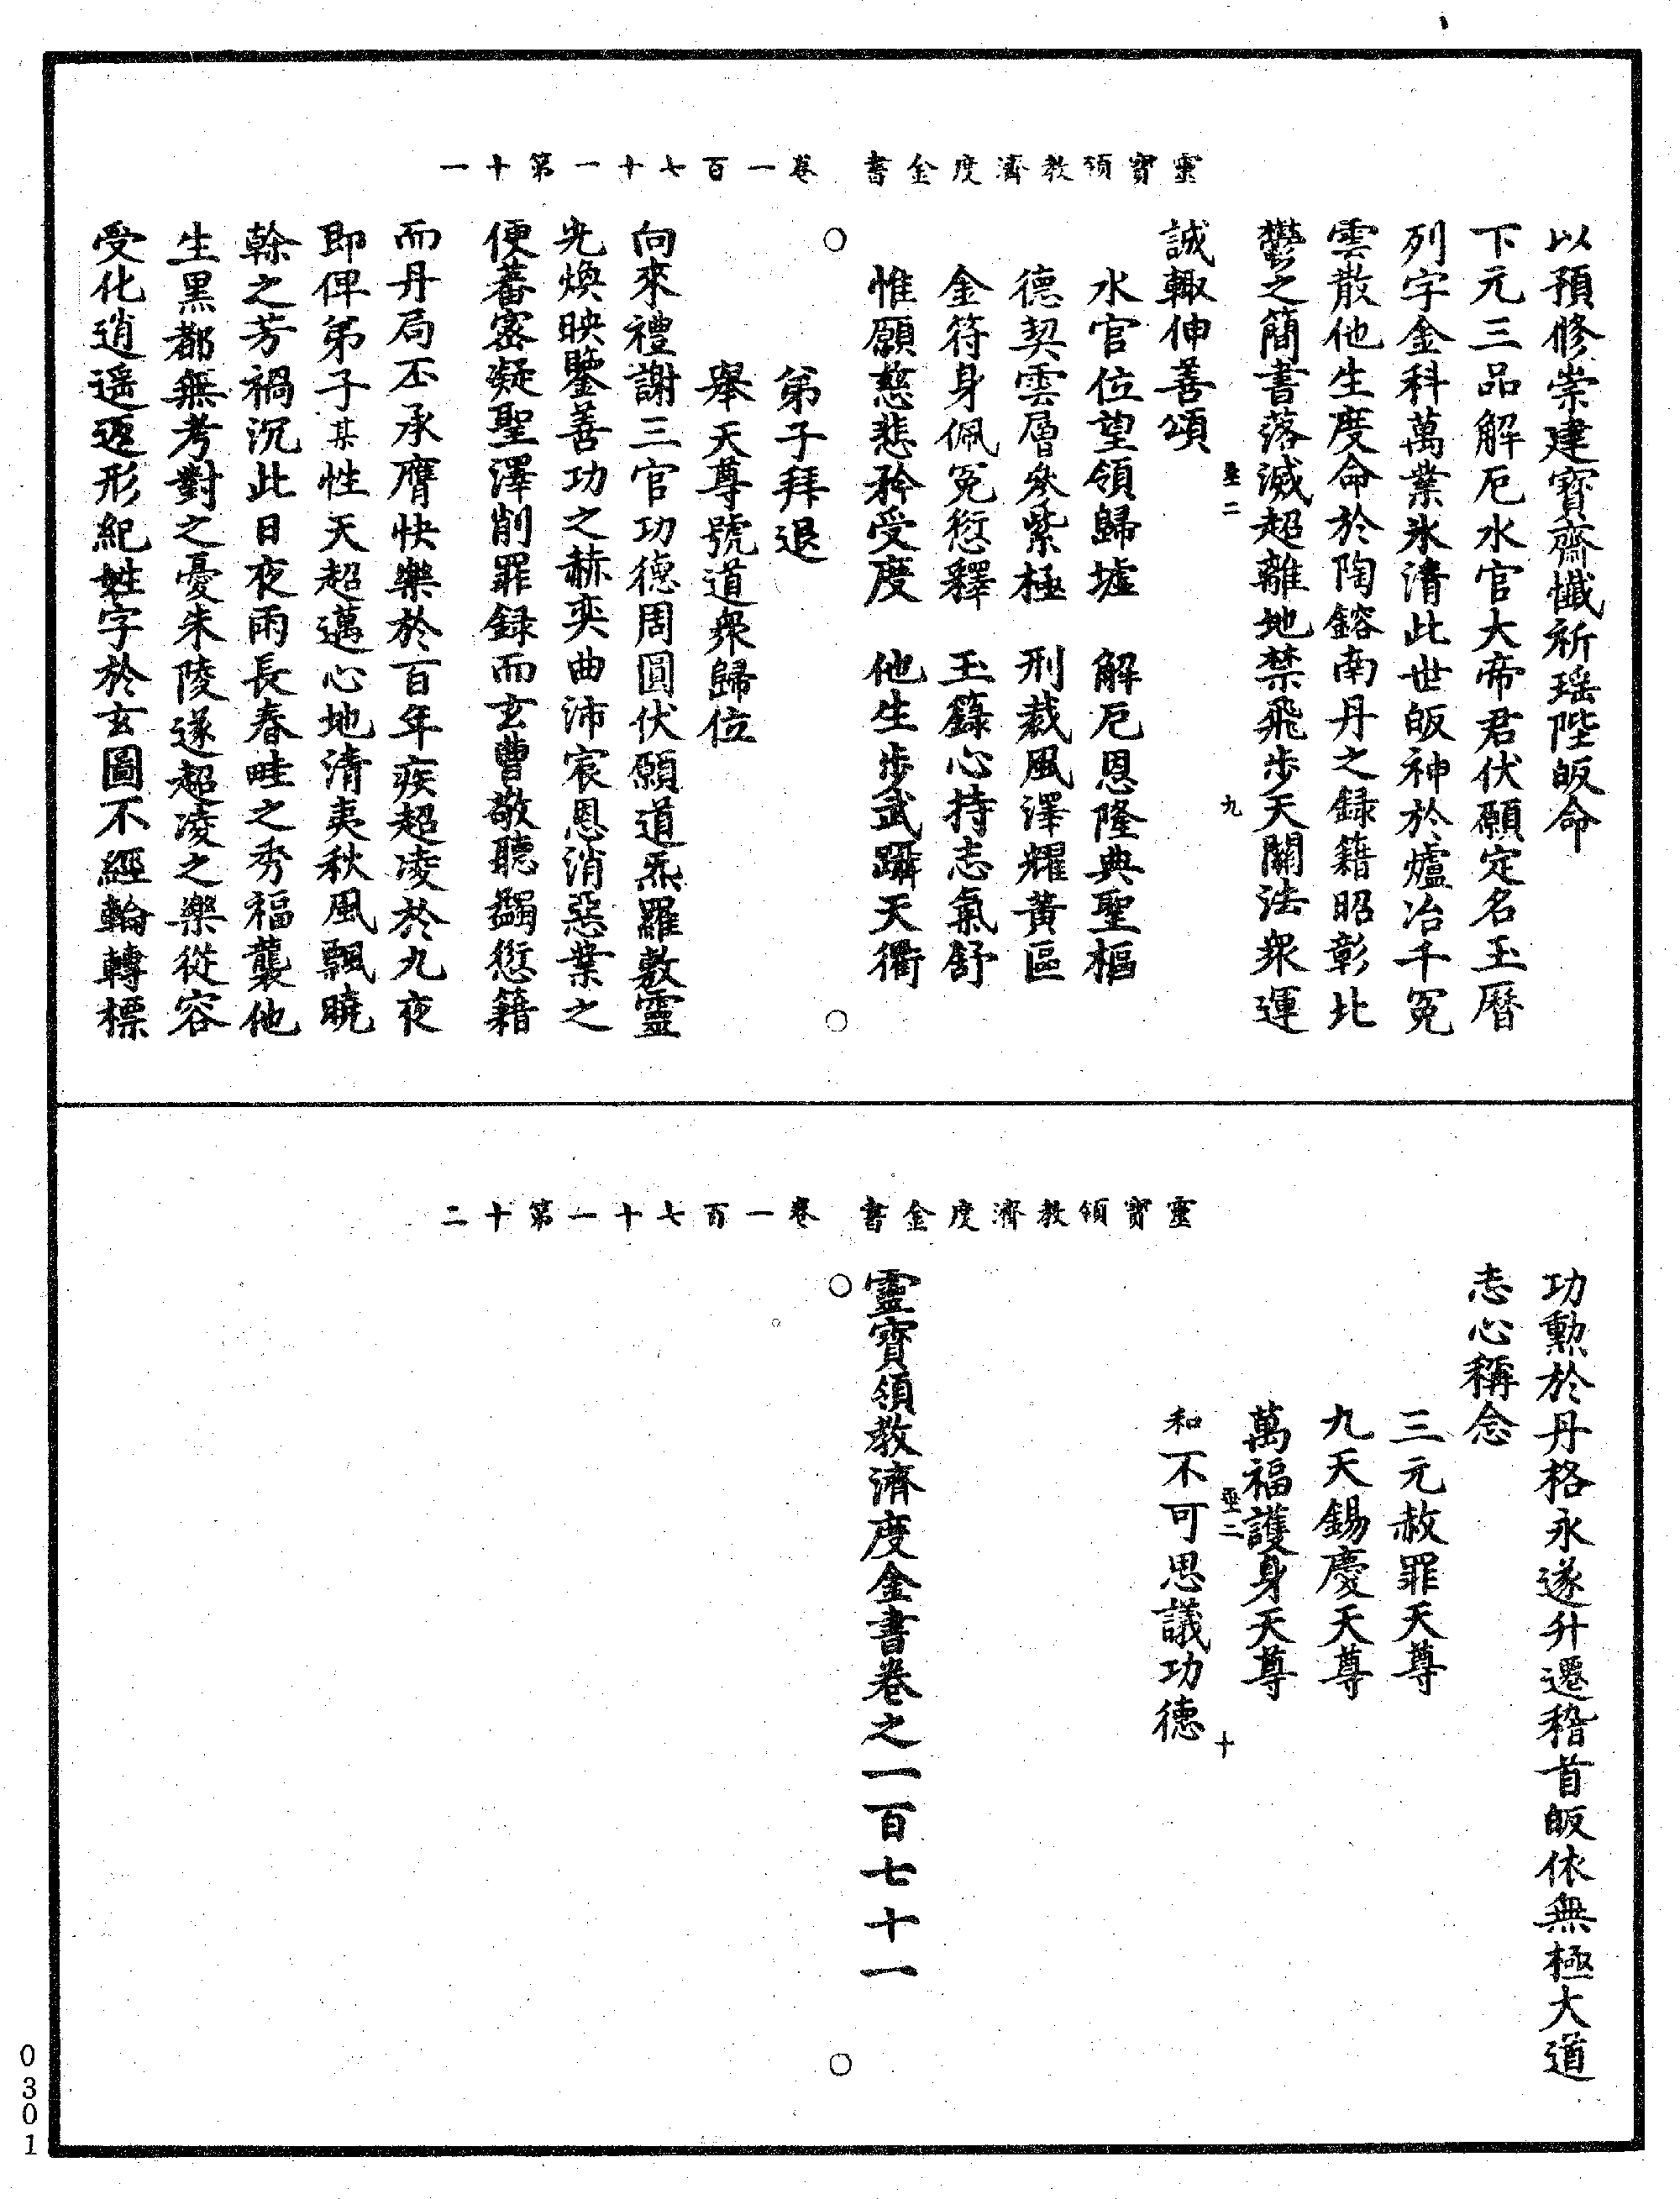 靈寶領教濟度金書　卷一百七十一第十一
以預修崇建寶齋懺祈瑶陛皈命
下元三品解厄水官大帝君伏願定名玉曆
列字金科萬業氷清此世皈神於爐冶千冤
雲散他生度命於陶鎔南丹之録籍昭彰北
鬱之簡書落滅超離地禁飛步天關法衆運
垩二　九
誠輙伸善頌
水官位望領歸墟　解厄恩隆典聖樞
德契雲層叅紫極　刑裁風澤耀黃區
金符身佩冤愆釋　玉籙心持志氣舒
惟願慈悲矜受度　他生步武躡天衢
弟子拜退
舉天尊號道衆歸位
向來禮謝三官功德周圓伏願道炁羅敷靈
光煥映鑒善功之赫奕曲沛宸恩消惡業之
便蕃密凝聖澤削罪録而玄曹敬聽蠲愆籍
而丹局丕承膺快樂於百年疾超凌於九夜
即俾弟子某性天超邁心地清夷秋風飄曉
榦之芳禍沉此日夜雨長春畦之秀福襲他
生黑都無考對之憂朱陵遂超凌之樂從容
受化逍遥返形紀姓字於玄圖不經輪轉標
靈寶領教濟度金書　卷一百七十一第十二
功勳於丹格永遂升遷稽首皈依無極大道
志心稱念
三元赦罪天尊
九天錫慶天尊
萬福護身天尊
垩二　十
和不可思議功德
靈寶領教濟度金書卷之一百七十一
0301